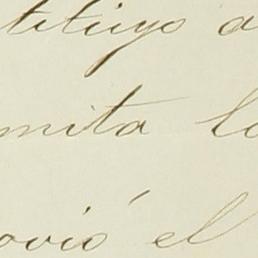 tituyo a
mita la
ovió el